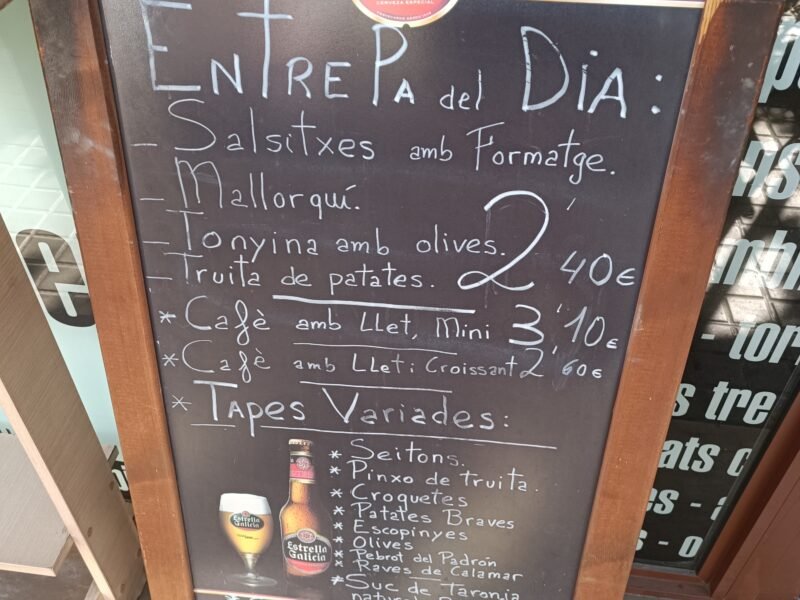 CERVEZA ESPECIAL
EnTRE PA del DIA :
- Salsitxes amb Formatge.
- Mallorquí.
- Tonyina amb olives.
- Truita de patates. 2'40€
* Cafè amb LLet, Mini 3'10€
* Cafè amb LLet i Croissant 2'60€
* TAPES VARIADES:
* Seitons.
* Pinxo de truita.
* Croquetes
* Patates Braves
* Escopinyes
* Olives
* Pebrot del Padrón
* Raves de Calamar
* Suc de Taronja
Estrella
Galicia
Estrella
Galicia